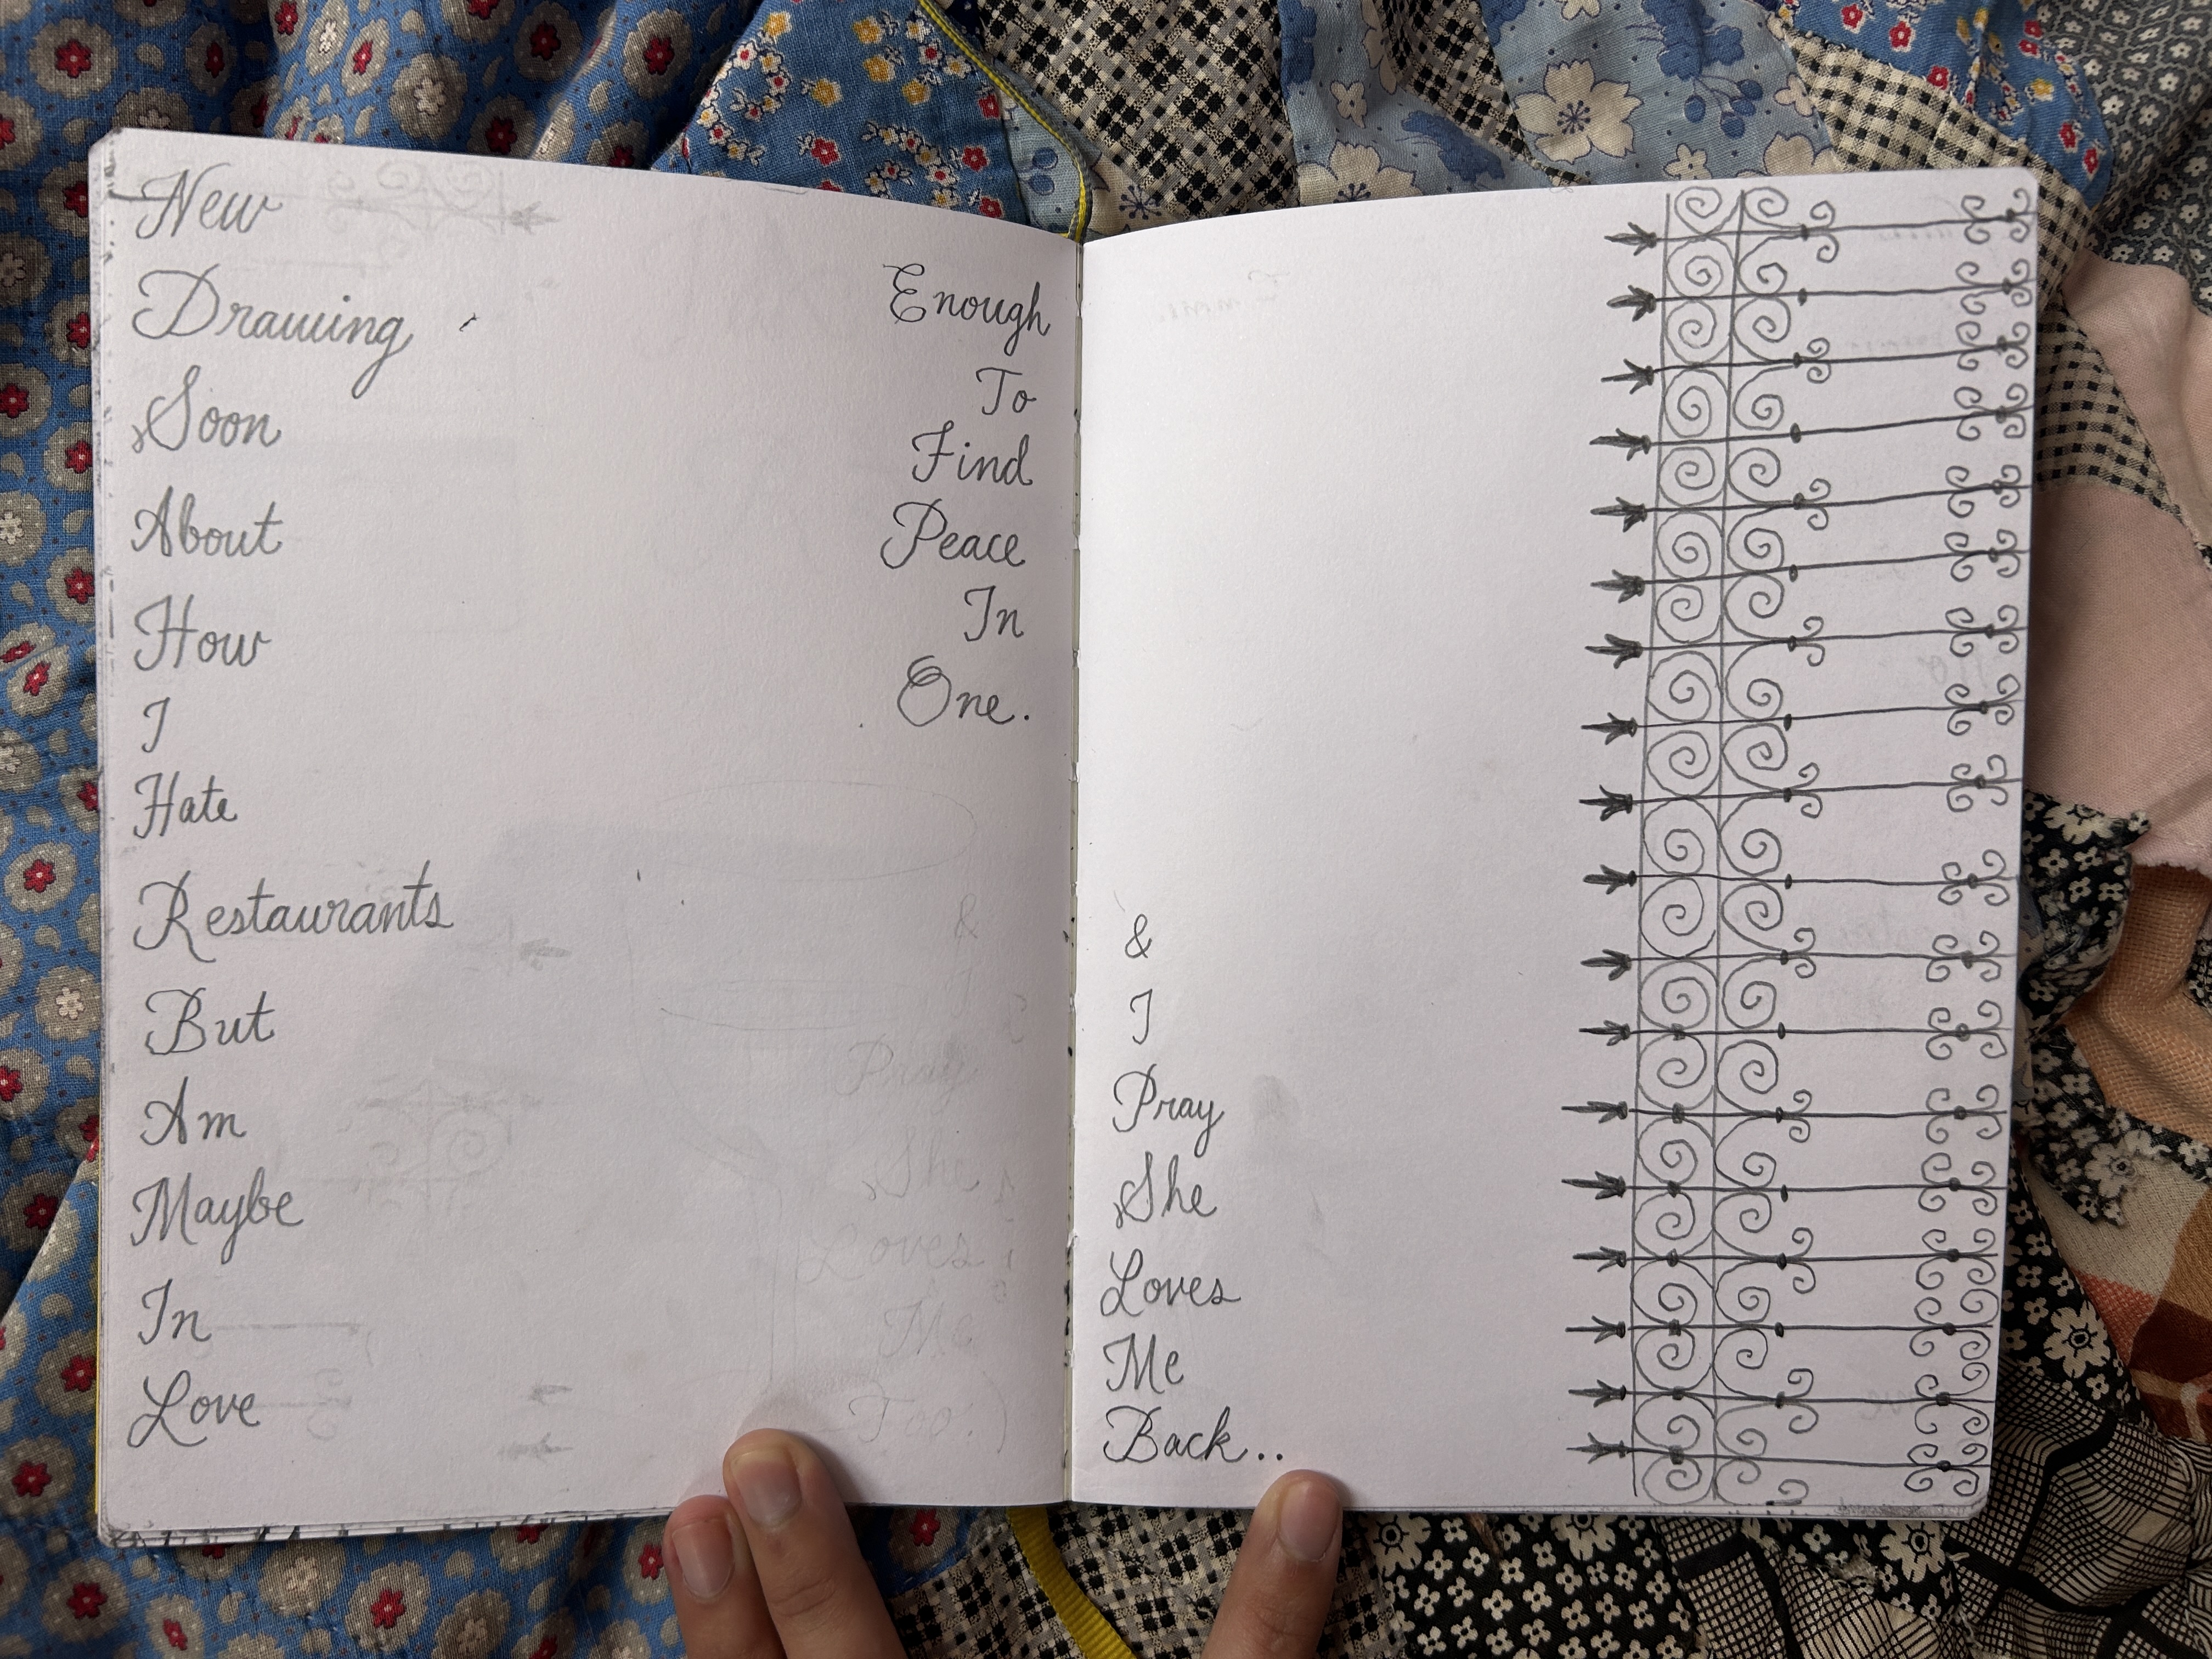 New
Drawing
Soon
About
How
I
Hate
Restaurants
But
Am
Maybe
In
Love
Enough
To
Find
Peace
In
One.
&
I
Pray
She
Loves
Me
Back..